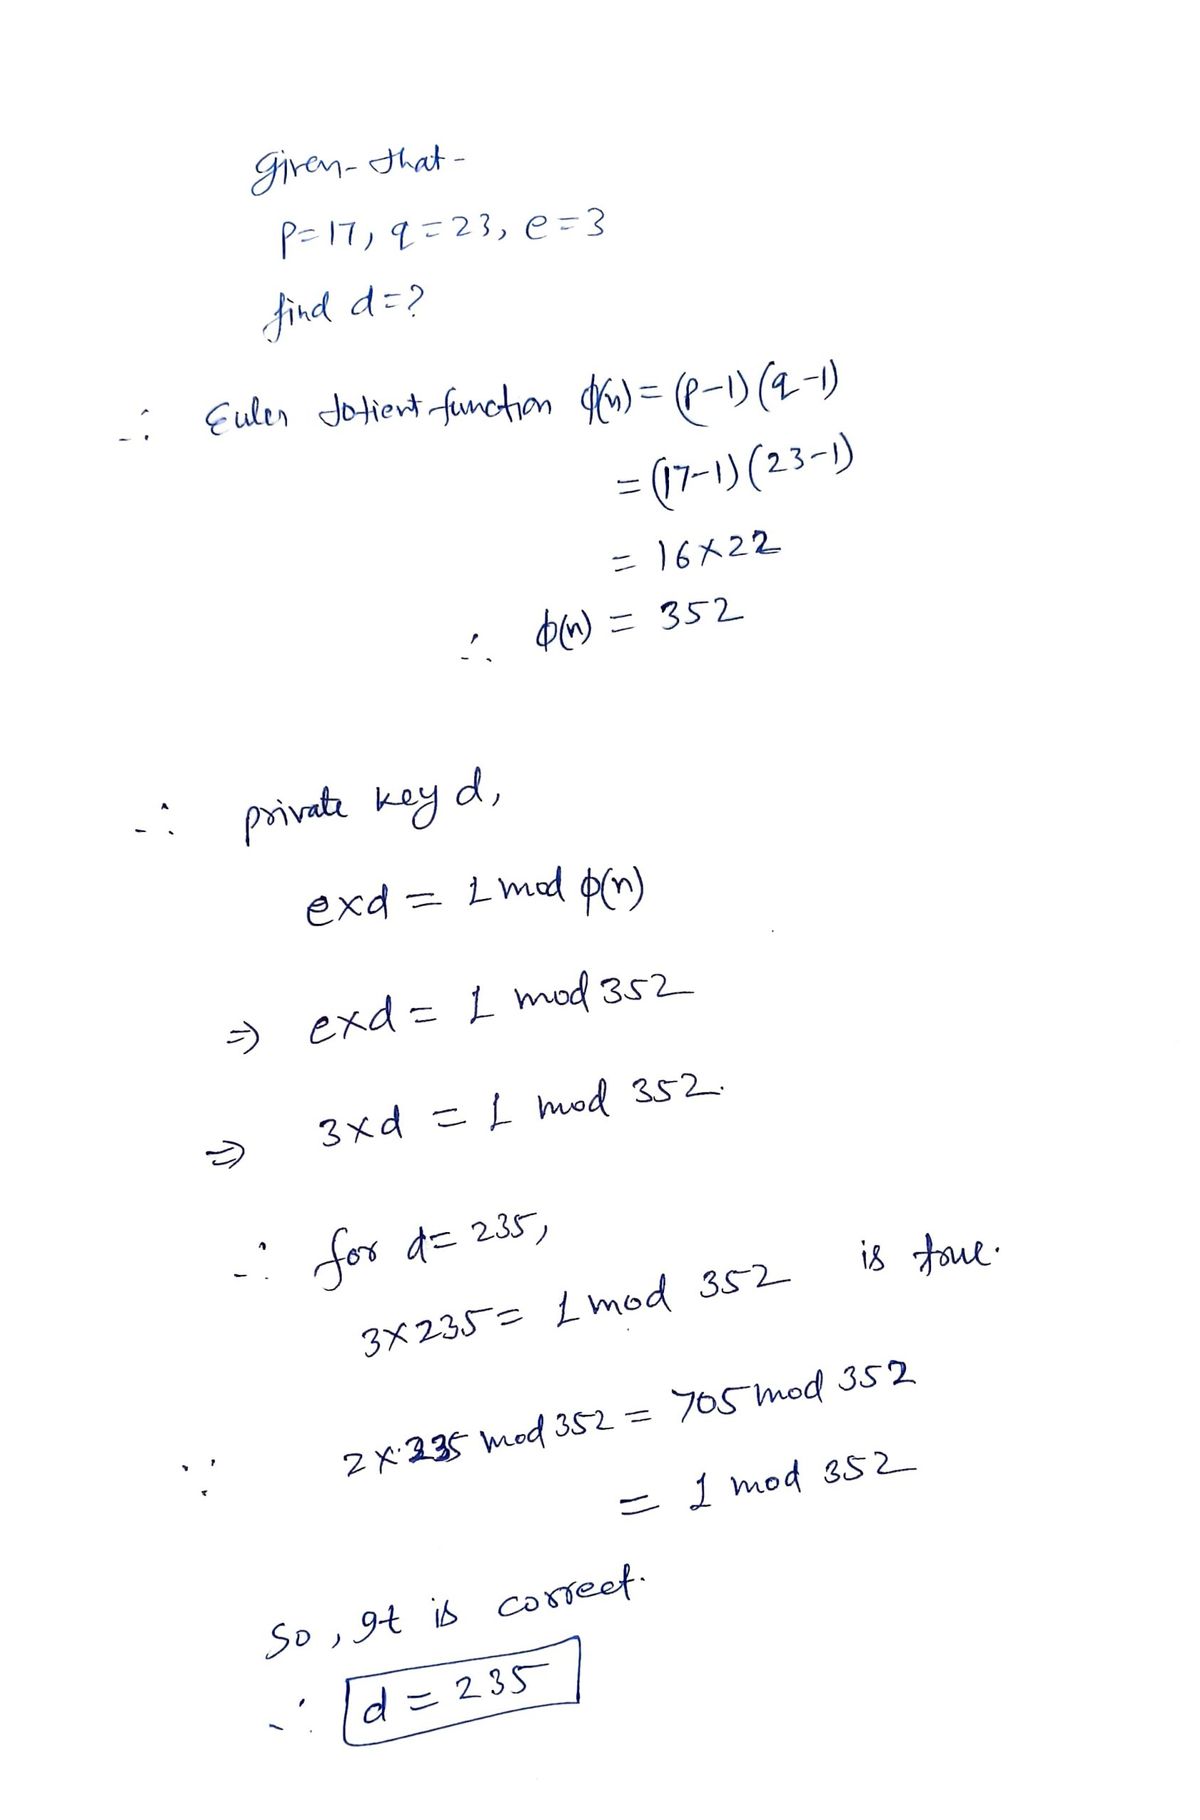 given-that-
p=17, q=23, e=3
find d=?
∴ Euler totient-function ϕ(n)=(p-1)(q-1)
=(17-1)(23-1)
= 16×22
∴ ϕ(n) = 352
∴ private key d,
e×d = 1 mod ϕ(n)
⇒ e×d = 1 mod 352
⇒ 3×d = 1 mod 352.
∴ for d= 235,
3×235= 1 mod 352 is true.
∵ 2×235 mod 352 = 705 mod 352
= 1 mod 352
So, It is correct.
∴ d = 235